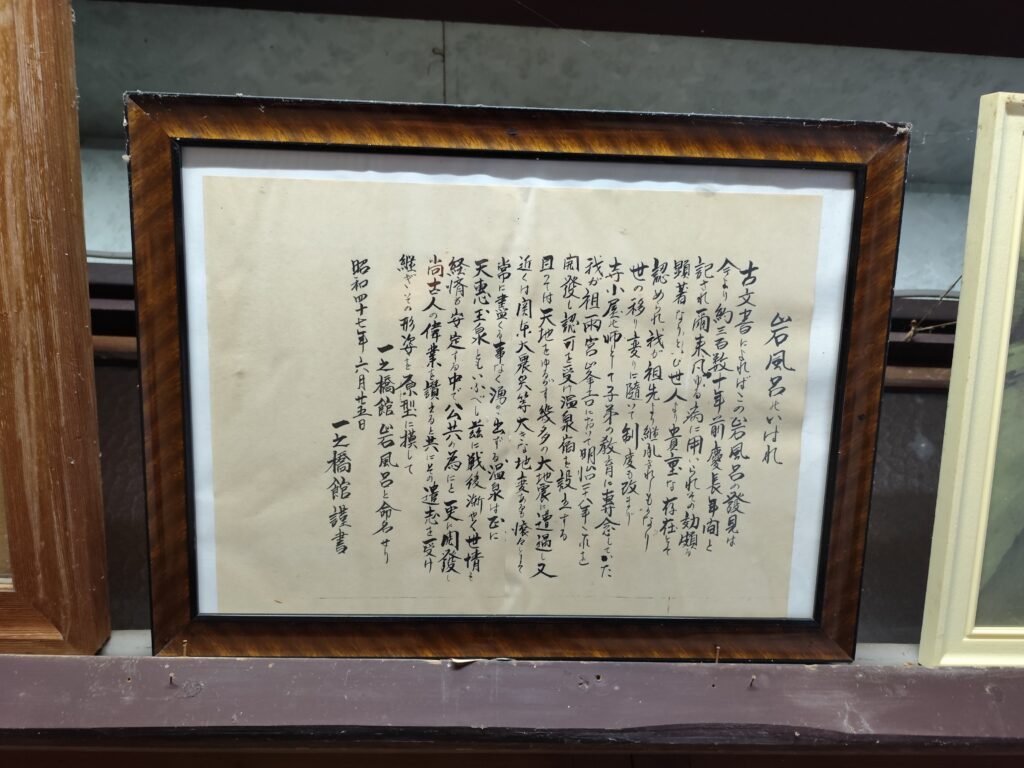 岩風呂のいはれ
古文書によればこの岩風呂の發見は
今より約三百数十年前慶長年間と
記され爾来凡ゆる為に用ひられその効頗る
顕著なりと心ひ世人より貴重な存在として
認められ我が祖先より継承されしものなり
世の移り変りに随って制度も改まり
寺小屋の師として子弟の教育に専念していた
我が祖雨宮峯吉になって明治三八年これを
開發し認可を受け温泉宿を設立する
且つては天地をゆるがす幾多の大地震に遭遇し又
近くは関東大震災等大きな地変ある
常に盡くる事なく湧き出ずる温泉は正に
天恵玉泉とも心ふべし茲に戦後漸やく世情も
経済も安定する中で公共の為にと更に開發し
尚士人の偉業を讃える共にその遺志を受け
継ぎその形姿を原型に模して
一之橋館岩風呂と命名せり
昭和四十七年六月廿五日
一之橋館謹書